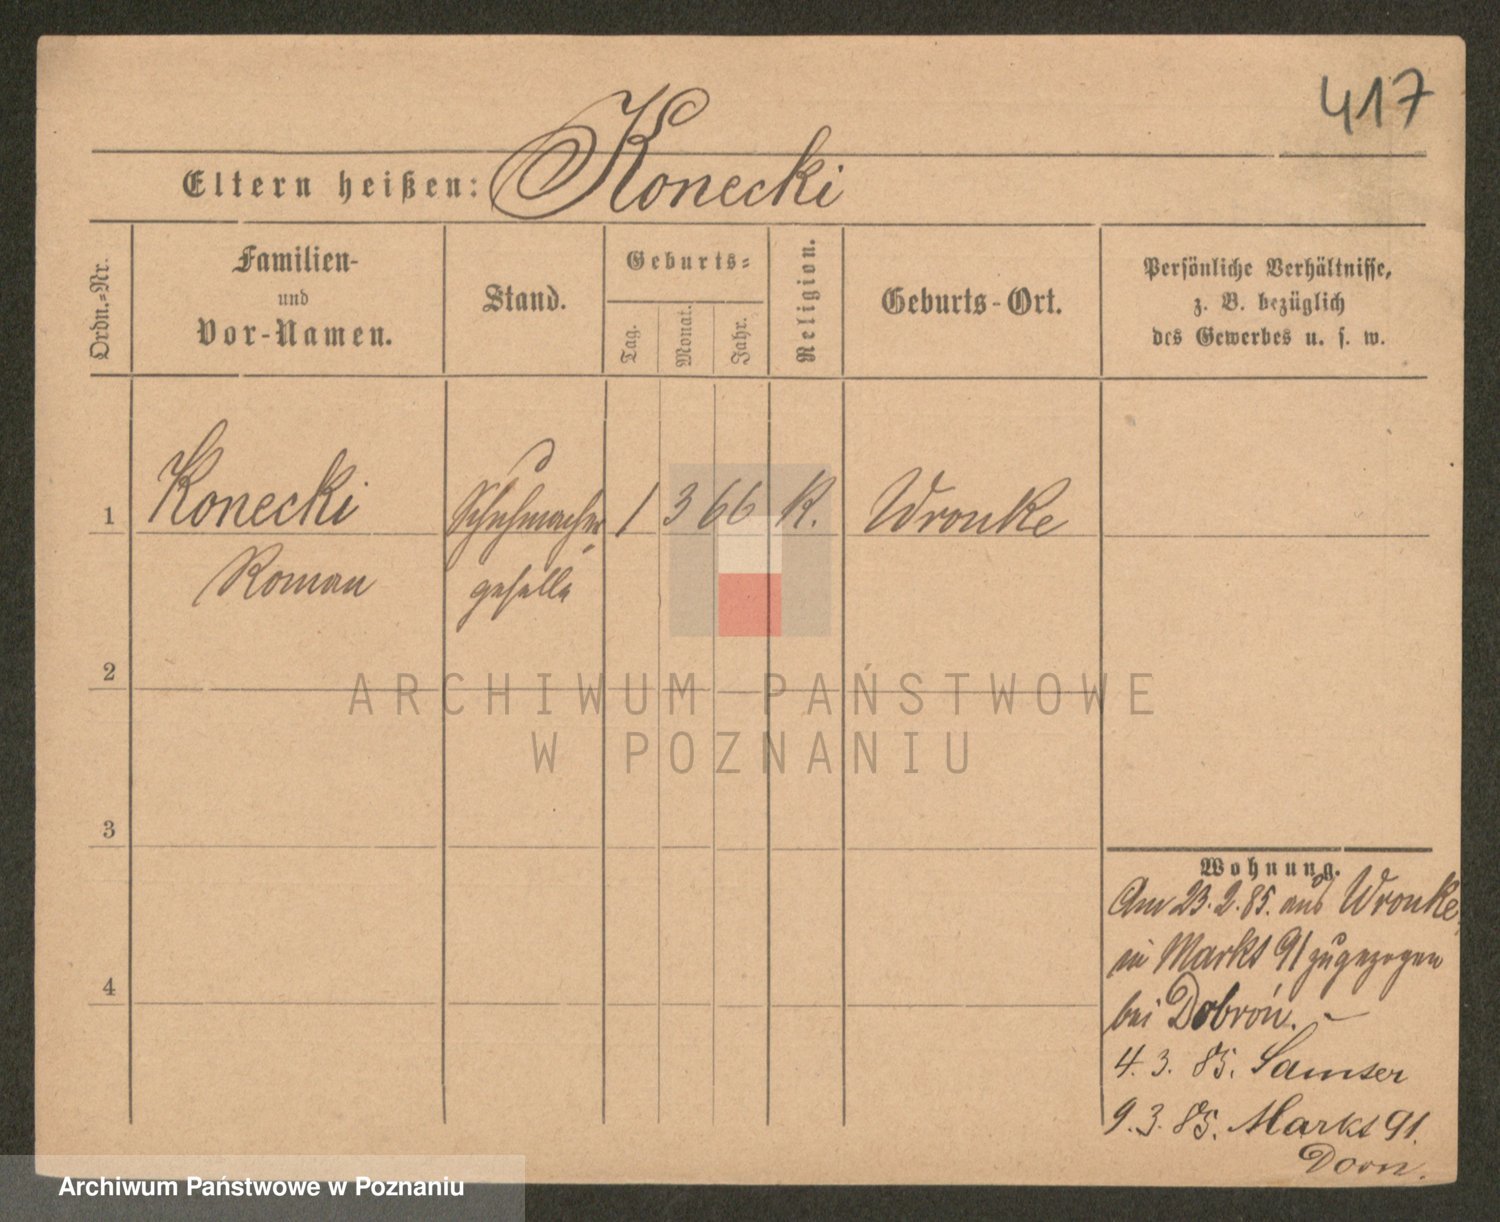 417
Eltern heißen: Konecki
Ordn.=Nr.
Familien-
und
Vor-Namen.
Stand.
Geburts=
Tag.
Monat.
Jahr.
Religion.
Geburts-Ort.
Persönliche Verhältnisse,
z. B. bezüglich
des Gewerbes u. s. w.
1 Konecki Schuhmacher 1 3 66 K. Wronke
Roman geselle
2
ARCHIWUM PAŃSTWOWE
W POZNANIU
3
Wohnung.
Am 23.2.85. aus Wronke,
in Markt 91 zugezogen
4
bei Dobroń.
4.3.85. Samter
9.3.85. Markt 91.
Archiwum Państwowe w Poznaniu